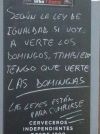 SEGÚN LA LEY DE
IGUALDAD SI VOY
A VERTE LOS
DOMINGOS, TAMBIÉN
TENGO QUE VERTE
LAS DOMINGAS
LAS LEYES ESTÁN
PARA CUMPLIRSE
CERVECEROS
INDEPENDIENTES